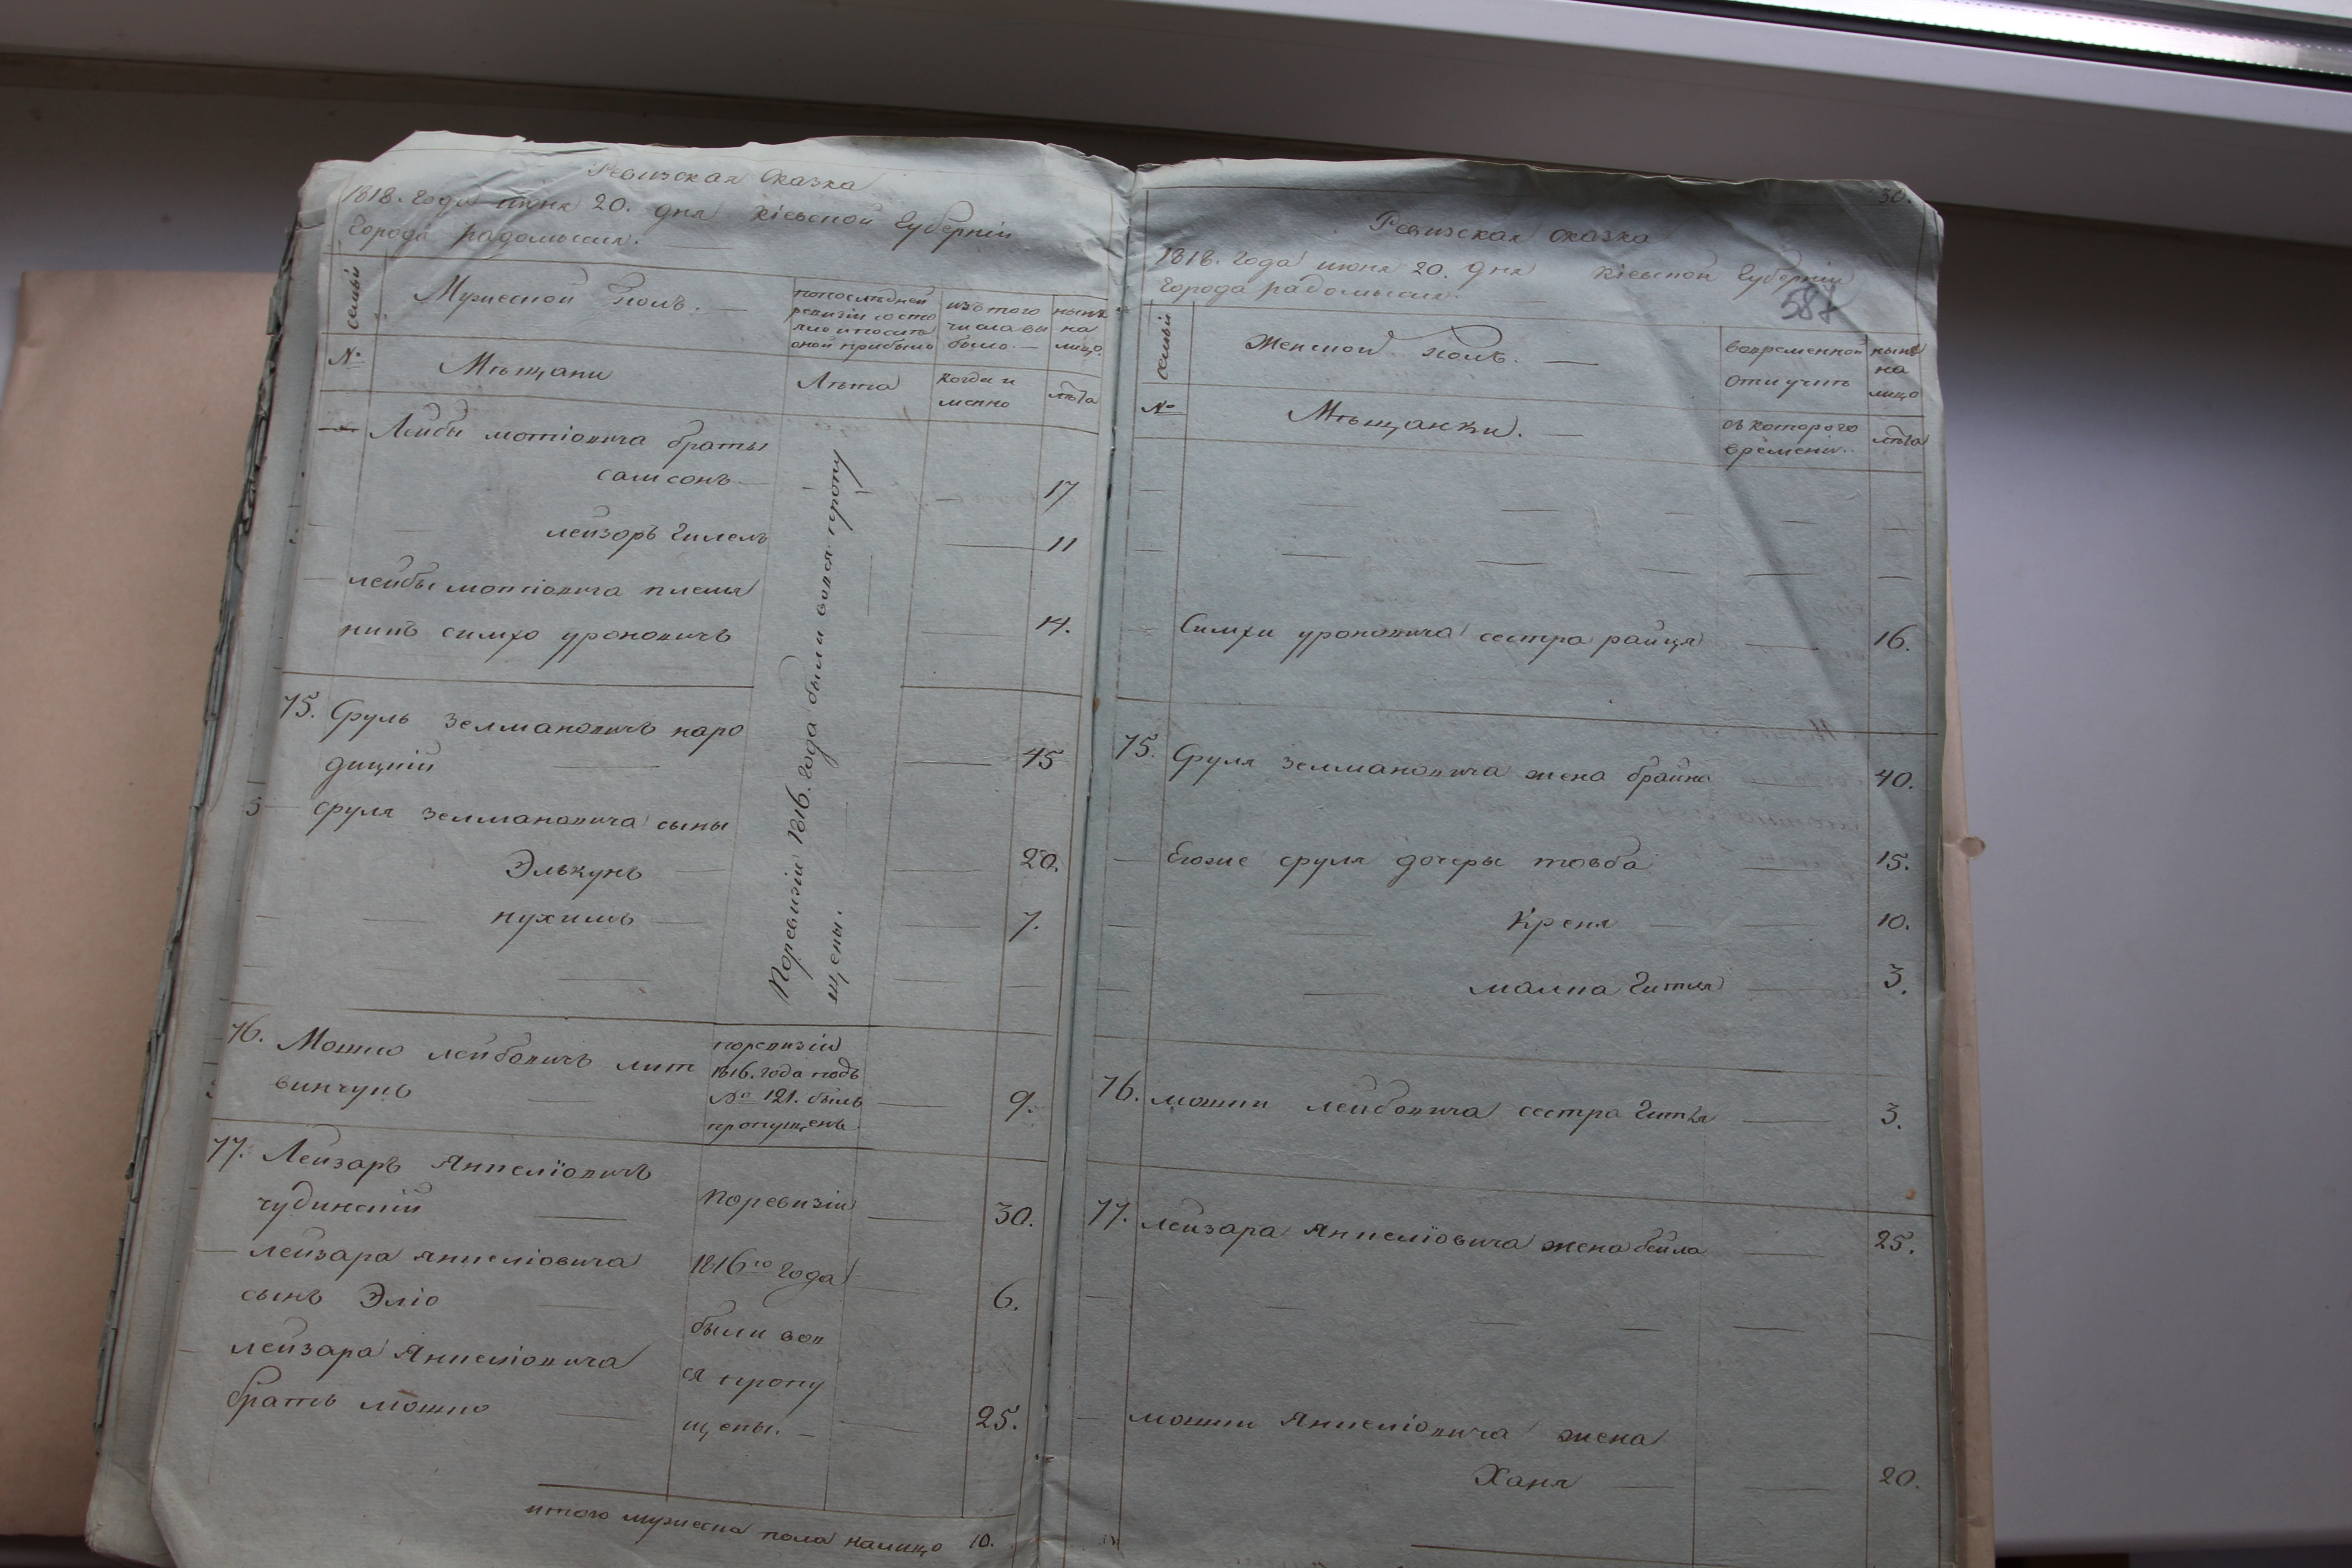 Ревизская Сказка
1818. года июня 20. дня Кіевской Губерніи
Города радомысля.
семьи
Мужеской полъ. —
попоследней
ревизіи состо
яло ипосле
оной прибыло
изътого
числа вы
было. —
ныне
на
лицо.
№
Мѣщани
Лѣта
когда и
менно
лѣта
Лейбы мотіовича браты
самсонъ — 17
лейзоръ Гилель — 11
лейбы мотіовича племя
никъ симхо уроновичъ — 14.
Поревизіи 1816. года были вовся пропу
щены.
75. Сруль зелмановичъ наро
дицкій — 45
сруля зелмановича сыны
Элькунъ — 20.
нухимъ — 7.
76. Мошко лейбовичъ лит
винчукъ — 9.
поревизіи
1816. года подъ
№ 121. былъ
пропущенъ.
77. Лейзаръ Анчеліовичъ
чудинскій — 30.
лейзара анчеліовича
сынъ Эліо — 6.
лейзара Анчеліовича
братъ мошко — 25.
поревизіи
1816го года
были вов
ся пропу
щены. —
итого мужеска пола налицо 10.
30.
Ревизская сказка
1818. Года июня 20. дня Кіевской Губерніи
Города радомысля.
587
семьи
Женской полъ. —
вовременной
отлучке
ныне
на
лицо
№
Мѣщанки. —
съ которого
времени.
лѣта
Симхи уроновича сестра райця — 16.
75. Сруля зелмановича жена брайна — 40.
Егоже сруля дочеры товба — 15.
Креня — 10.
малка Гитля — 3.
76. мошки лейбовича сестра Гитля — 3.
77. лейзара Анчеліовича жена бейла — 25.
мошки Анчеліовича жена
Ханя — 20.